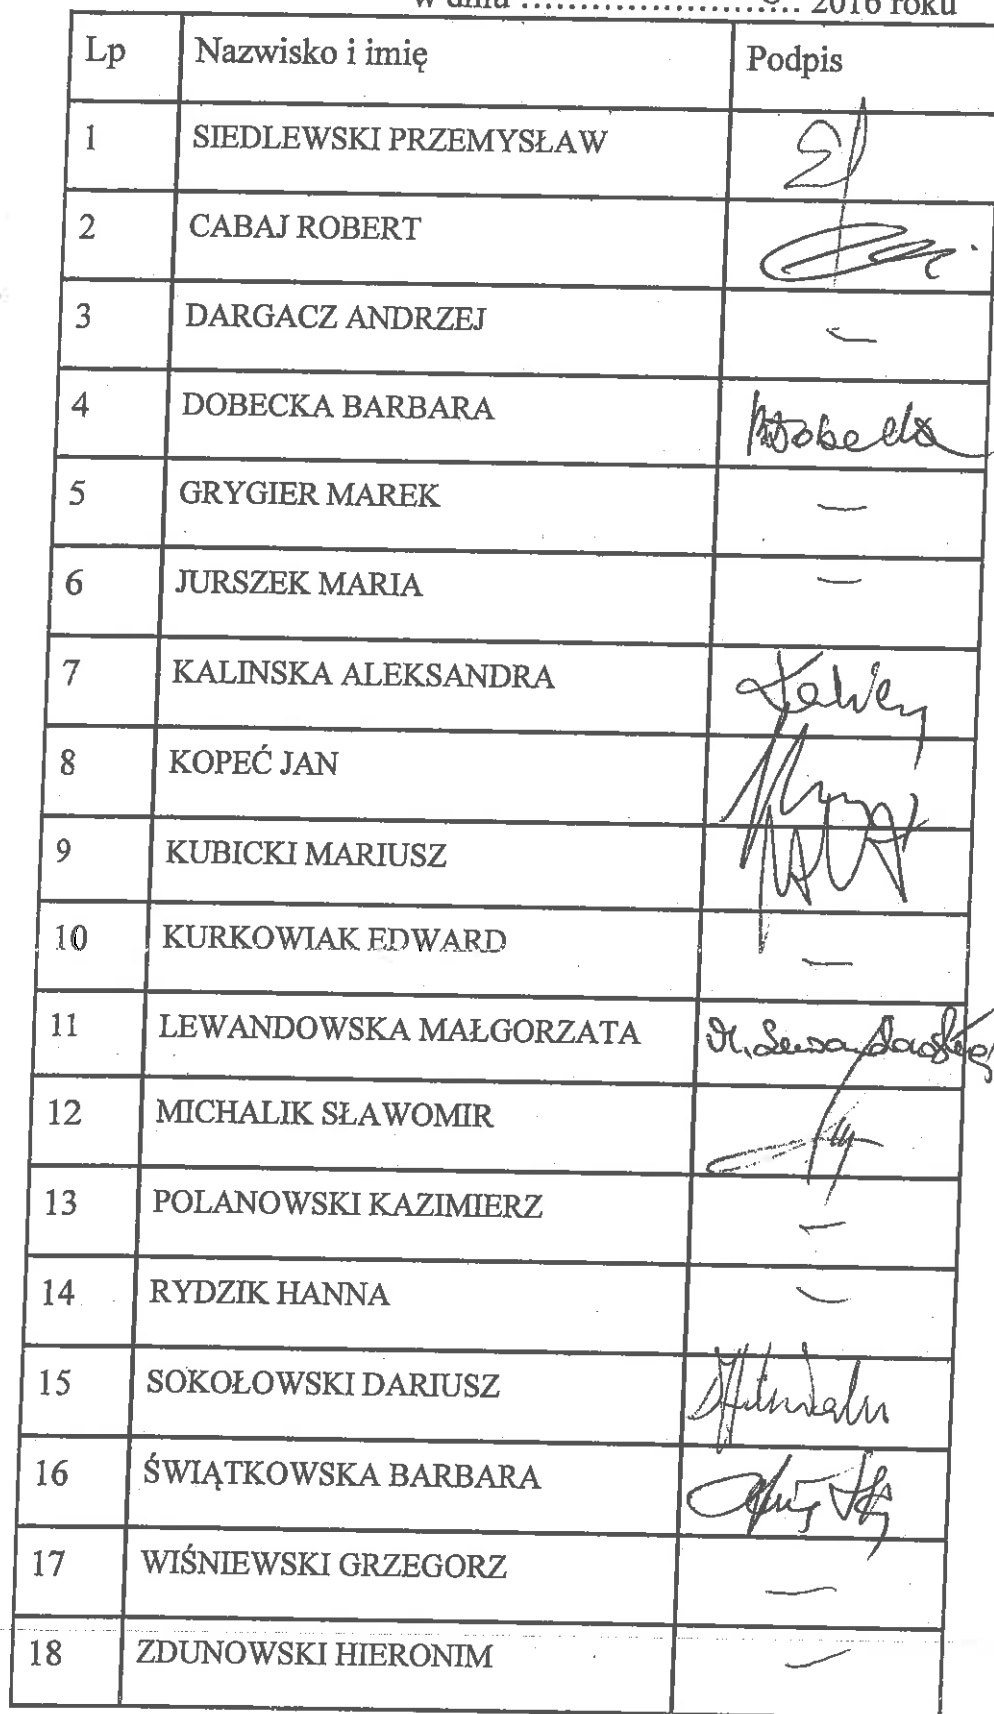 w dnia ........................ 2016 roku
Lp Nazwisko i imię Podpis
1 SIEDLEWSKI PRZEMYSŁAW
2 CABAJ ROBERT
3 DARGACZ ANDRZEJ —
4 DOBECKA BARBARA BDobecka
5 GRYGIER MAREK —
6 JURSZEK MARIA —
7 KALINSKA ALEKSANDRA
8 KOPEĆ JAN
9 KUBICKI MARIUSZ
10 KURKOWIAK EDWARD —
11 LEWANDOWSKA MAŁGORZATA M. Lewandowska
12 MICHALIK SŁAWOMIR
13 POLANOWSKI KAZIMIERZ —
14 RYDZIK HANNA —
15 SOKOŁOWSKI DARIUSZ
16 ŚWIĄTKOWSKA BARBARA
17 WIŚNIEWSKI GRZEGORZ —
18 ZDUNOWSKI HIERONIM —